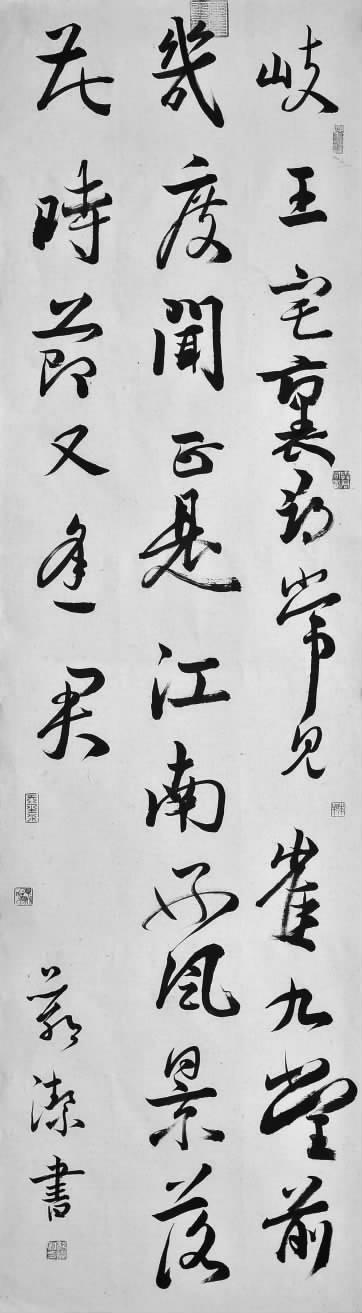 岐王宅裏尋常見崔九堂前
幾度聞正是江南好風景落
花時節又逢君
潔書